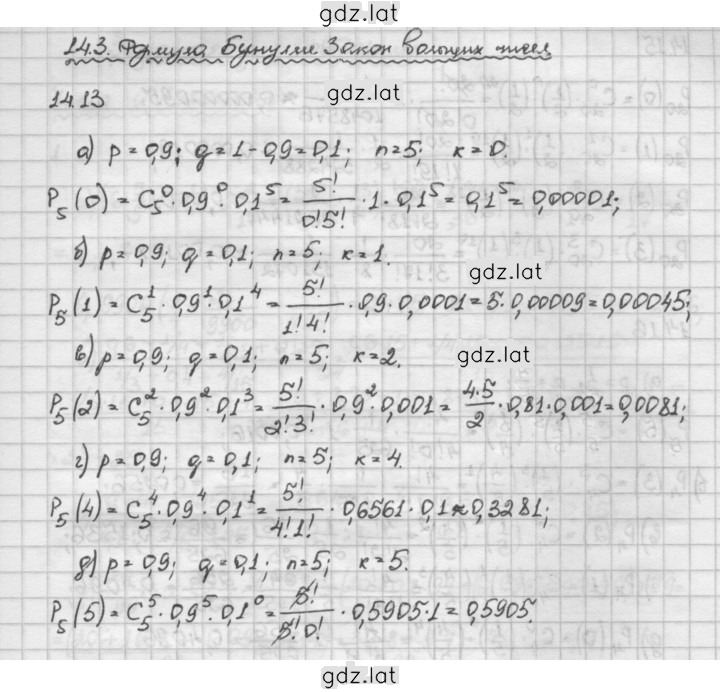 gdz.lat
14.3. Формула Бернулли. Закон больших чисел
14.13
gdz.lat
а) p = 0,9; q = 1 - 0,9 = 0,1; n = 5; к = 0
P₅(0) = C₅⁰ · 0,9⁰ · 0,1⁵ = 5!/0!5! · 1 · 0,1⁵ = 0,1⁵ = 0,00001;
б) p = 0,9; q = 0,1; n = 5; к = 1.
gdz.lat
P₅(1) = C₅¹ · 0,9¹ · 0,1⁴ = 5!/1!4! · 0,9 · 0,0001 = 5 · 0,00009 = 0,00045;
в) p = 0,9; q = 0,1; n = 5; к = 2.
gdz.lat
P₅(2) = C₅² · 0,9² · 0,1³ = 5!/2!3! · 0,9² · 0,001 = 4·5/2 · 0,81 · 0,001 = 0,0081;
г) p = 0,9; q = 0,1; n = 5; к = 4.
P₅(4) = C₅⁴ · 0,9⁴ · 0,1¹ = 5!/4!1! · 0,6561 · 0,1 ≈ 0,3281;
д) p = 0,9; q = 0,1; n = 5; к = 5.
P₅(5) = C₅⁵ · 0,9⁵ · 0,1⁰ = 5!/5!0! · 0,5905 · 1 = 0,5905.
gdz.lat